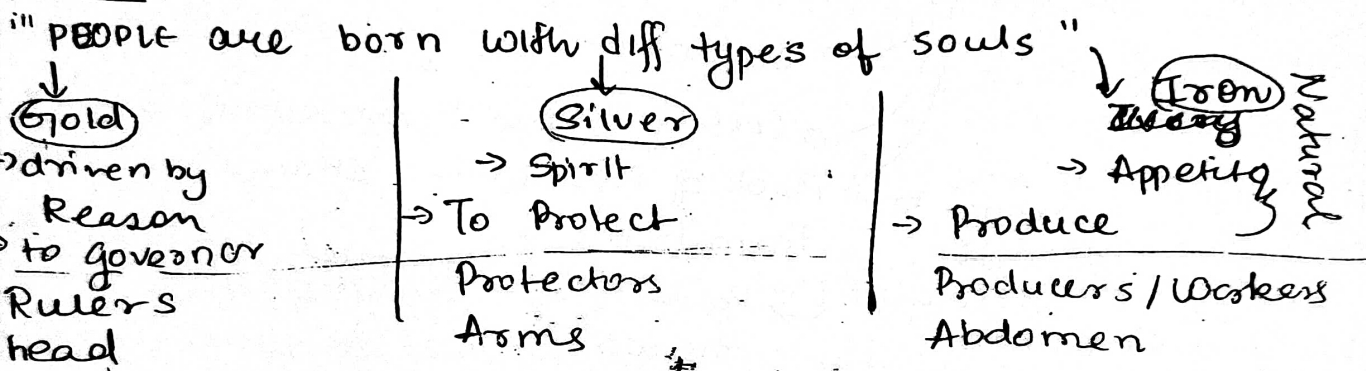 ill "PEOPLE are born with diff types of souls"
↓ Gold
→ driven by
Reason
→ to governor
Rulers
head
↓ Silver
→ Spirit
→ To Protect
Protectors
Arms
↓ Iron
→ Appetite
→ Produce
Natural
Producers / Workers
Abdomen